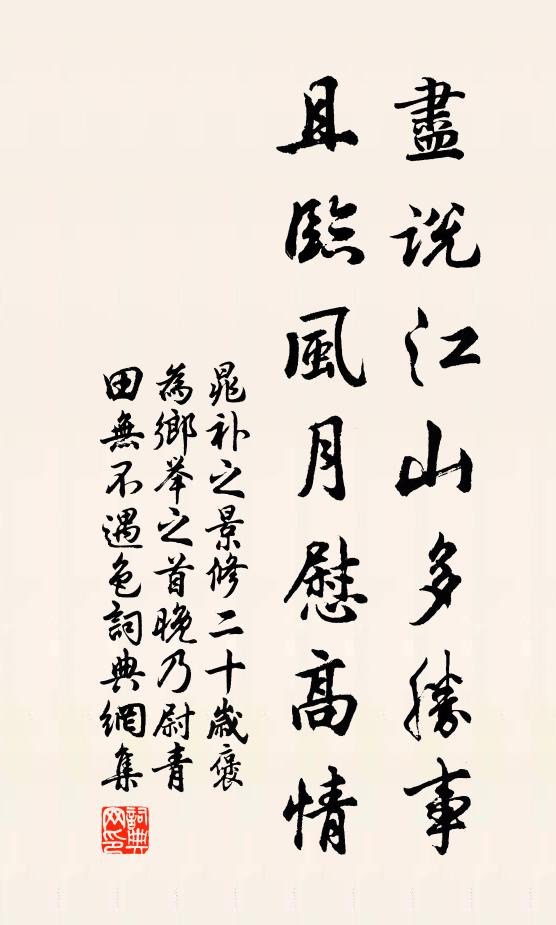 盡説江山多勝事
且臨風月慰高情
晁补之景修二十歲褒
為鄉举之首晚乃尉青
田無不遇色詞典網集
詞典
网印